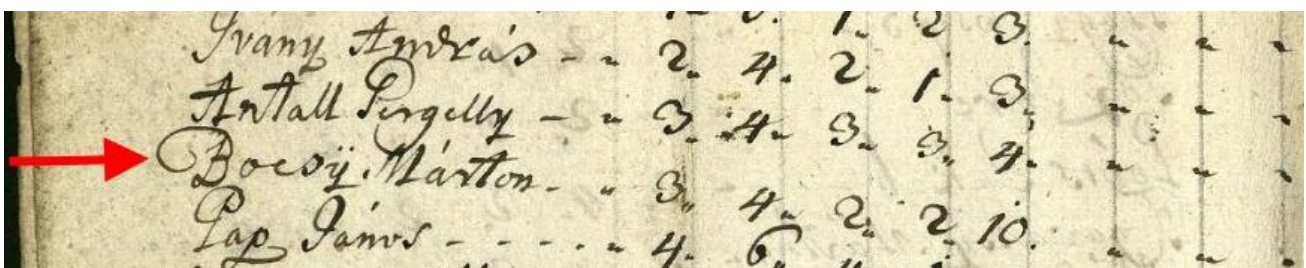 1. 2 3. " " "
Ivány András - " 2. 4. 2. 1. 3. " " "
Antall Gergelly - " 3. 4. 3. 3. 4. " " "
Bocsÿ Márton - " 3. 4. 2. 2. 10. " " "
Pap János - - - - " 4. 6.